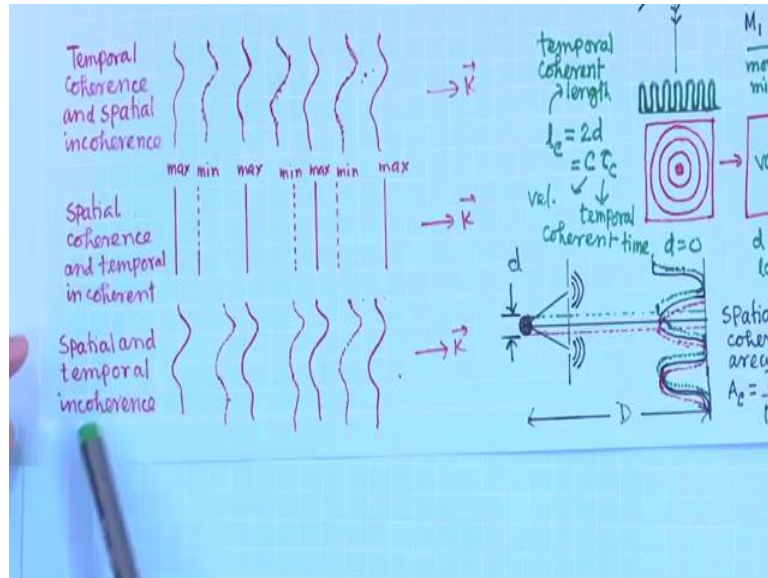 Temporal
coherence
and spatial
incoherence
→ K
max min max min max min max
Spatial
coherence
and temporal
incoherent
→ K
Spatial and
temporal
incoherence
→ K
temporal
coherent
length
lc = 2d
= C τc
val.
temporal
coherent time
d=0
M1
d
d
D
Ac =